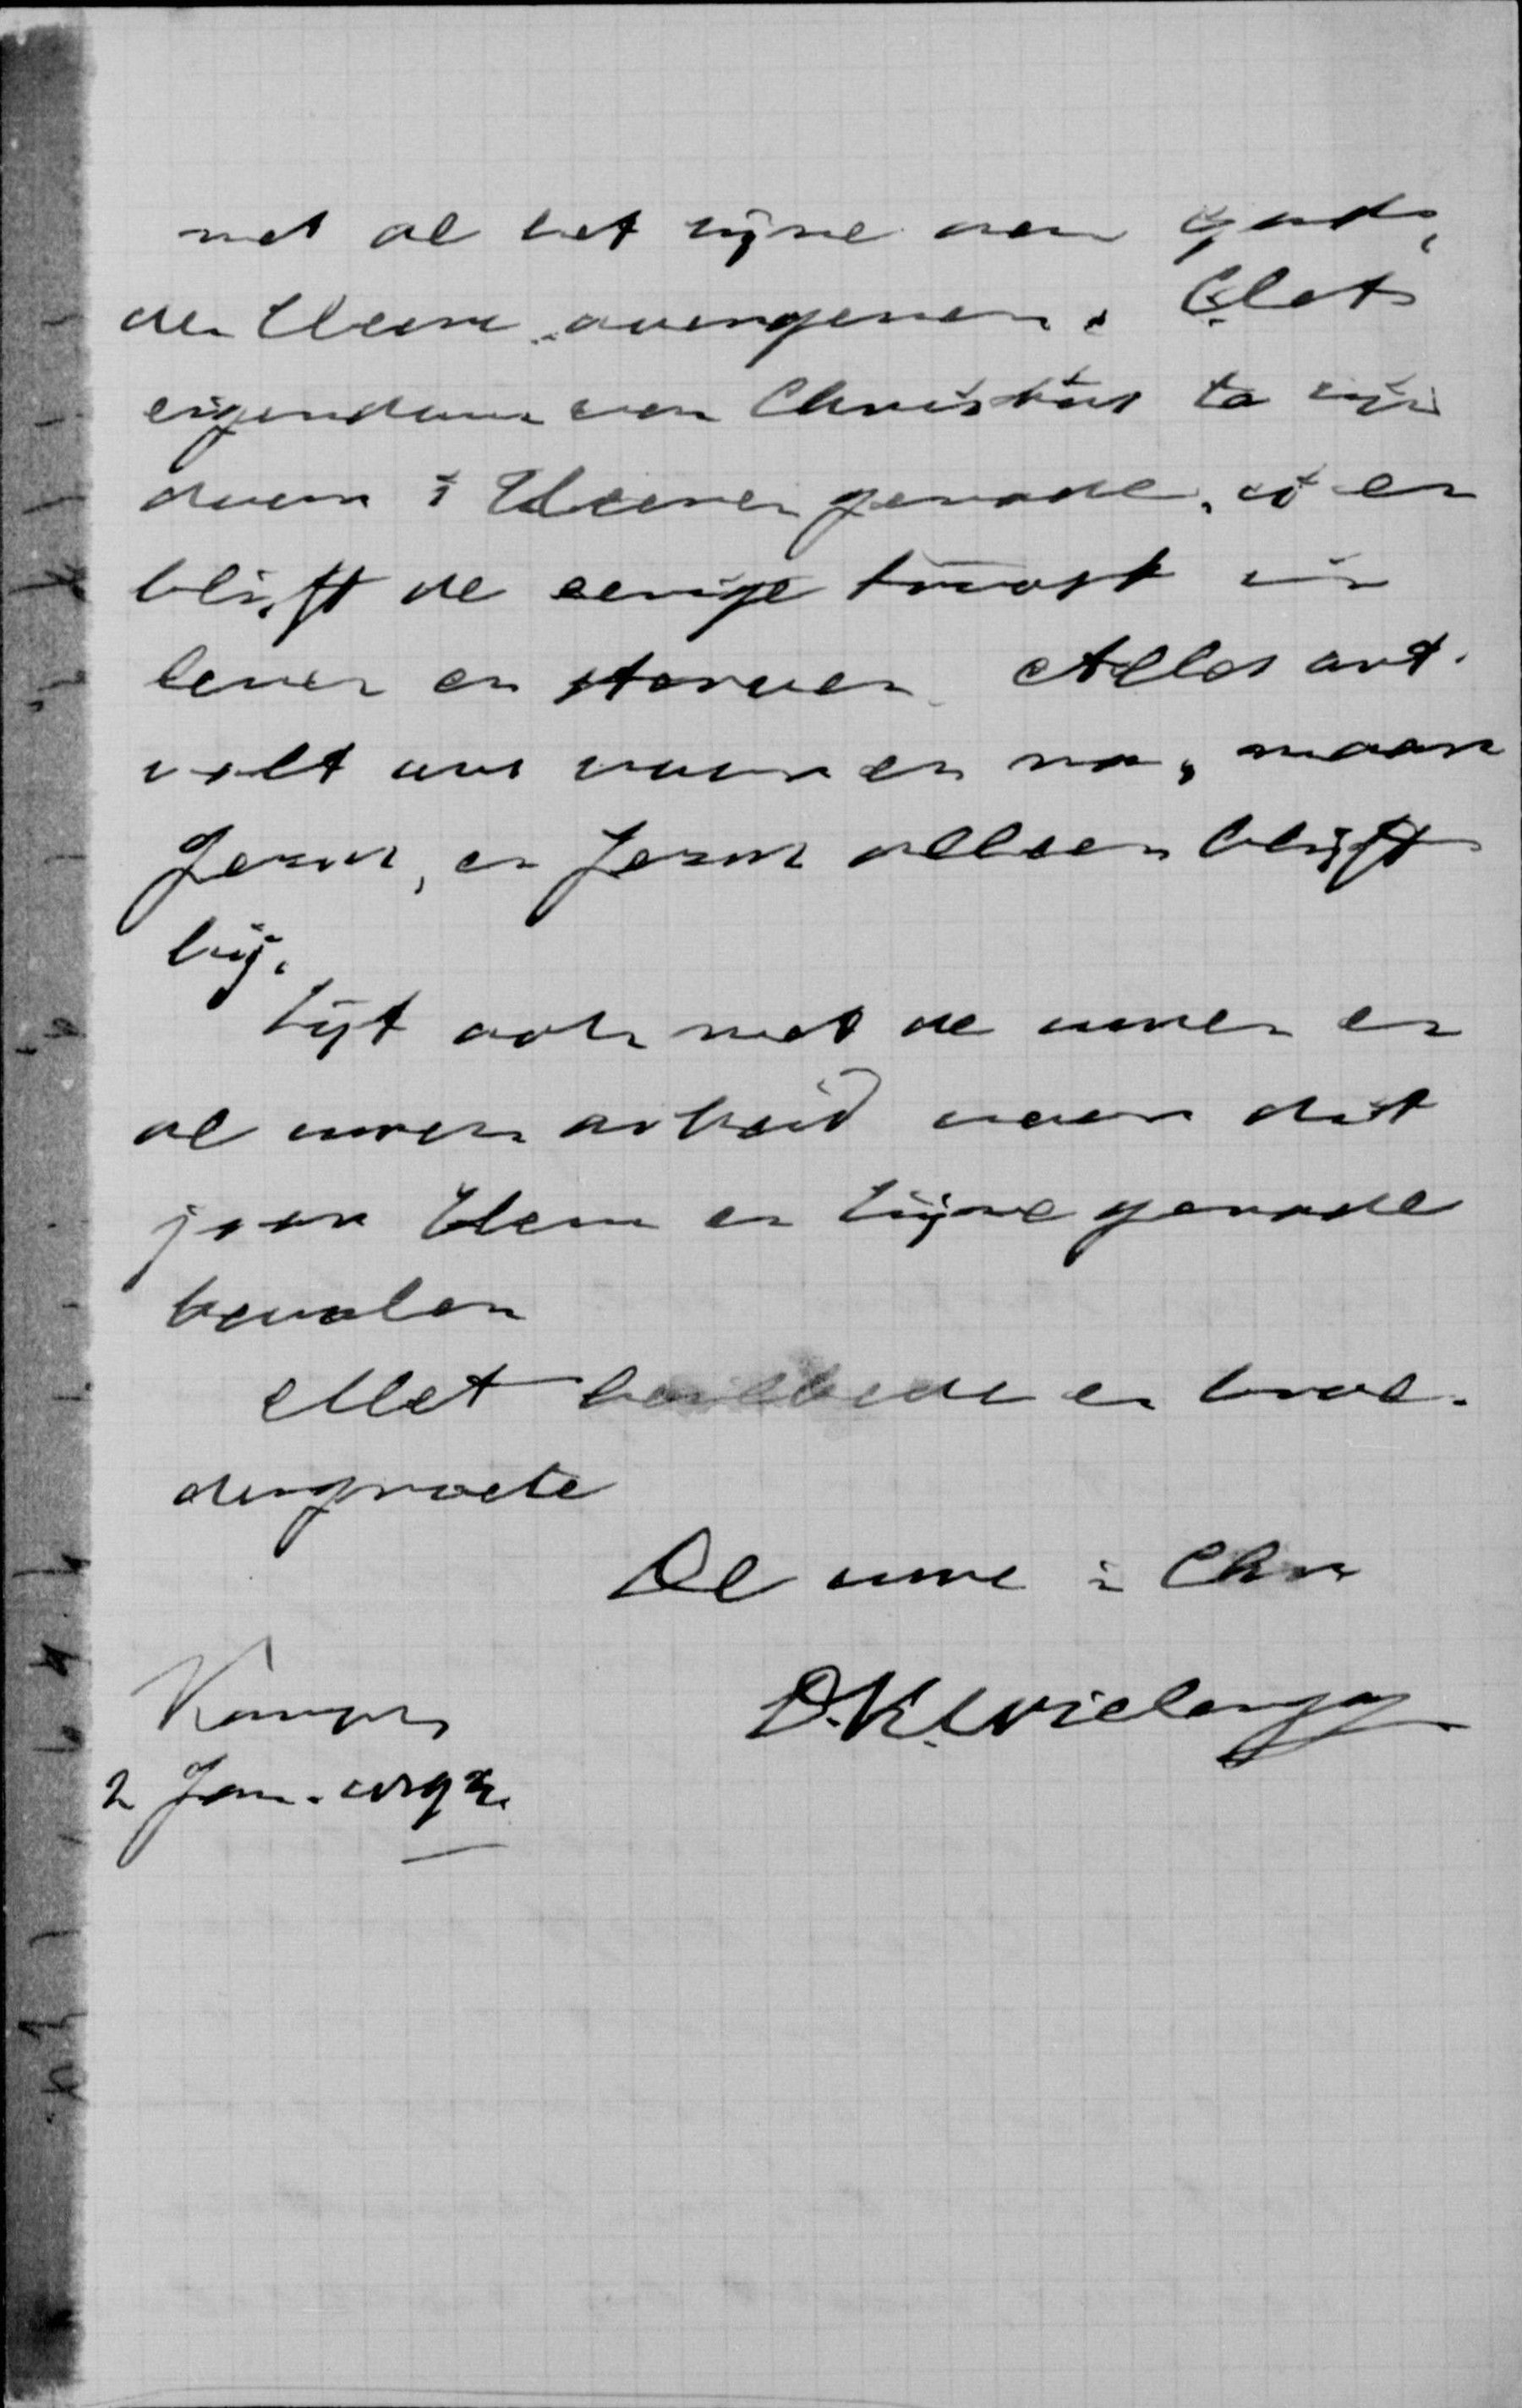 met al het zijne aan God,
den Heere overgeven. Het
eigendom van Christus te zijn
door 's Heeren genade, is en
blijft de eenige troost in
leven en sterven. Alles ont-
valt ons voor en na, maar
Jezus, en Jezus alleen blijft
bij.
Zijt ook met de uwen en
al uwen arbeid voor dit
jaar Hem en Zijne genade
bevolen
Met heilbede en broe-
dergroete
De uwe in Chr
D.K. Wielenga
Kampen
2 Jan.